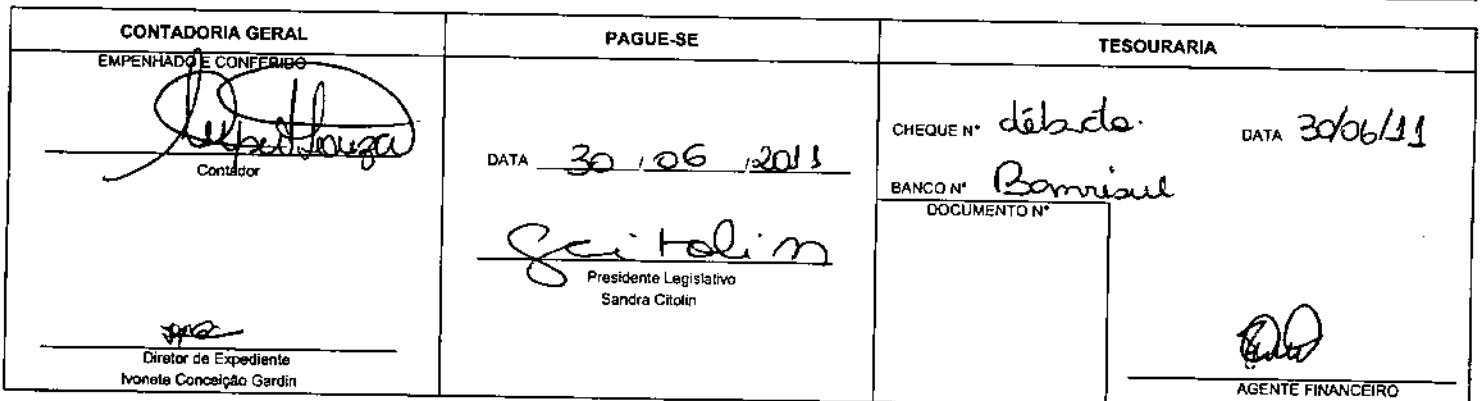 CONTADORIA GERAL
EMPENHADO E CONFERIDO
Contador
Diretor de Expediente
Ivonete Conceição Gardin
PAGUE-SE
DATA 30 / 06 / 2011
Scitolin
Presidente Legislativo
Sandra Citolin
TESOURARIA
CHEQUE N° débcto. DATA 30/06/11
BANCO N° Banrisul
DOCUMENTO N°
AGENTE FINANCEIRO